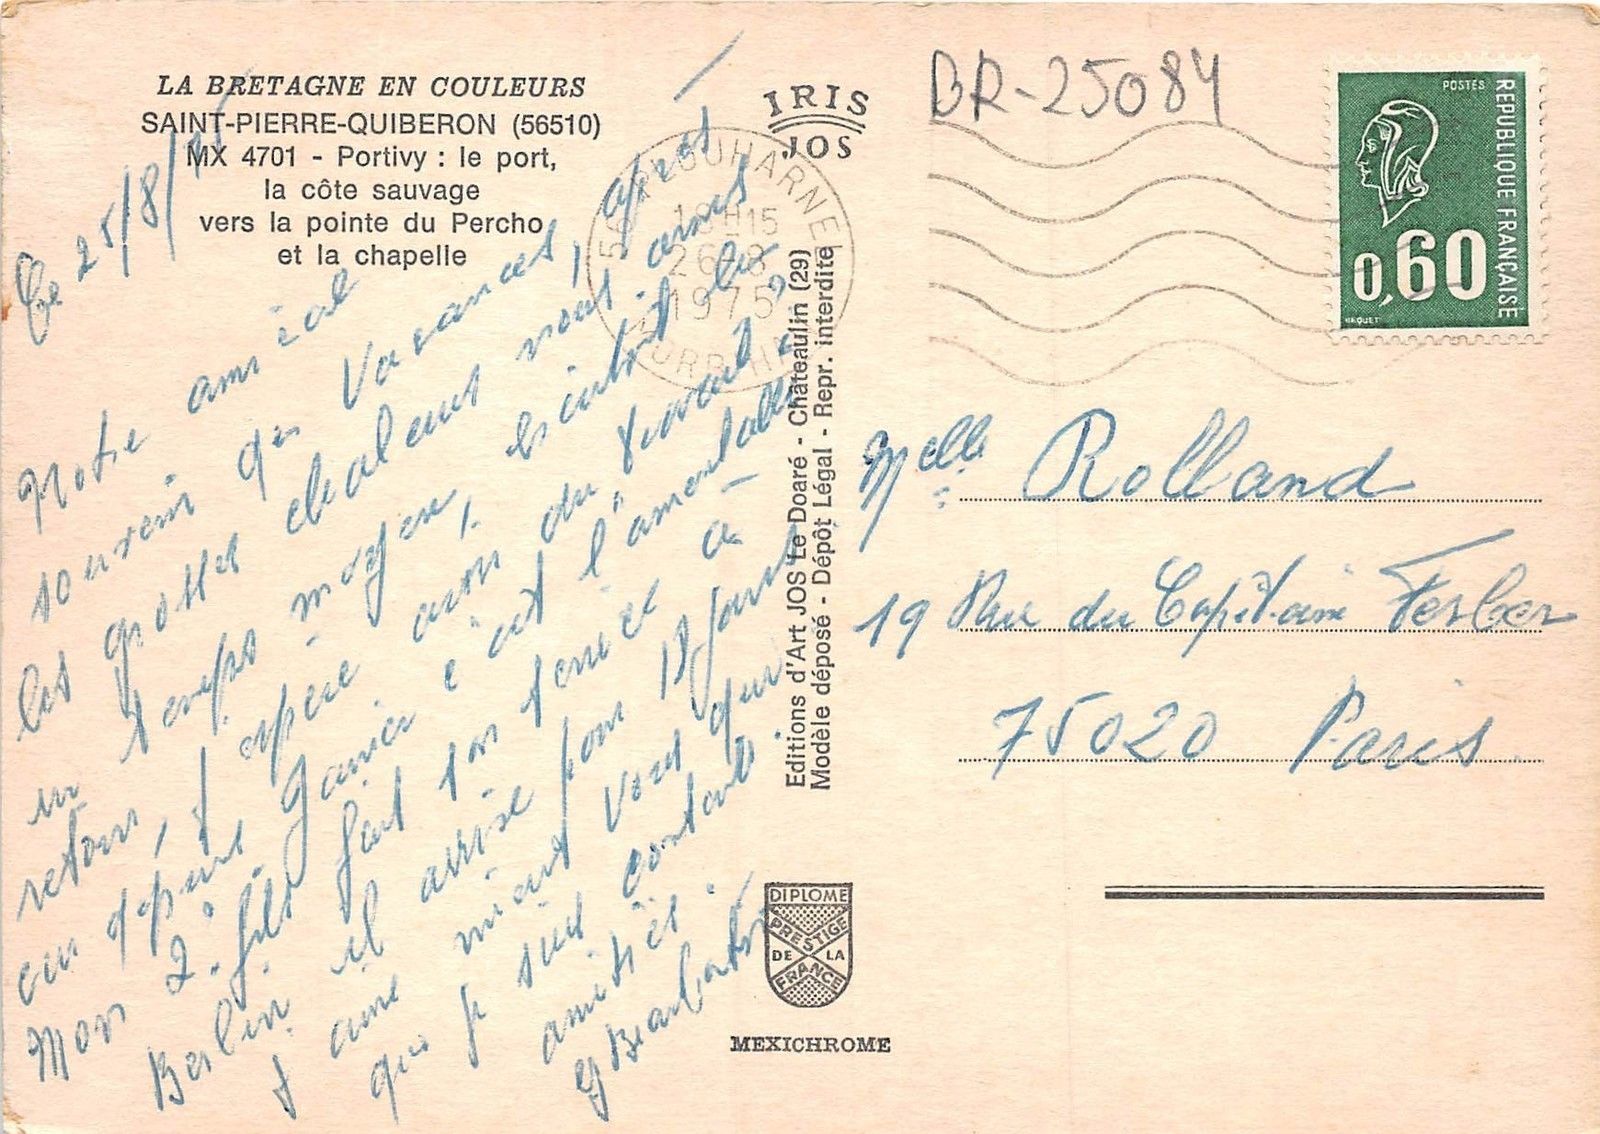 LA BRETAGNE EN COULEURS
SAINT-PIERRE-QUIBERON (56510)
MX 4701 - Portivy : le port,
la côte sauvage
vers la pointe du Percho
et la chapelle
IRIS
JOS
BR-25084
POSTES
REPUBLIQUE FRANÇAISE
0,60
56 PLOUHARNEL
18H15
26-8
1975
MORBIHAN
Le 25/8/75
Notre amical
souvenir des Vacances, après
les grosses chaleurs nous avons
un temps moyen,
retour, j'espère du travail,
c'est "l'amentable"
Mon 2° fils fait son service à
Berlin il arrive pour 18 jours
j'aime mieux vous
que je suis contente.
amitiés.
Editions d'Art JOS Le Doaré - Châteaulin (29)
Modèle déposé - Dépôt Légal - Repr. interdite
Melle Rolland
19 Rue du Capitaine Ferber
75020 Paris.
DIPLOME
PRESTIGE
DE LA
FRANCE
MEXICHROME